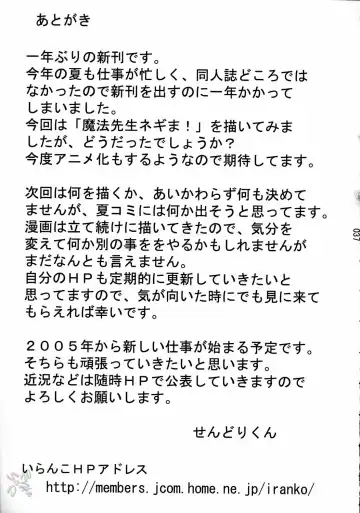 あとがき
一年ぶりの新刊です。
今年の夏も仕事が忙しく、同人誌どころでは
なかったので新刊を出すのに一年かかって
しまいました。
今回は「魔法先生ネギま！」を描いてみま
したが、どうだったでしょうか？
今度アニメ化もするようなので期待してます。
次回は何を描くか、あいかわらず何も決めて
ませんが、夏コミには何か出そうと思ってます。
漫画は立て続けに描いてきたので、気分を
変えて何か別の事ををやるかもしれませんが
まだなんとも言えません。
自分のＨＰも定期的に更新していきたいと
思ってますので、気が向いた時にでも見に来て
もらえれば幸いです。
２００５年から新しい仕事が始まる予定です。
そちらも頑張っていきたいと思います。
近況などは随時ＨＰで公表していきますので
よろしくお願いします。
せんどりくん
いらんこＨＰアドレス
http://members.jcom.home.ne.jp/iranko/
037